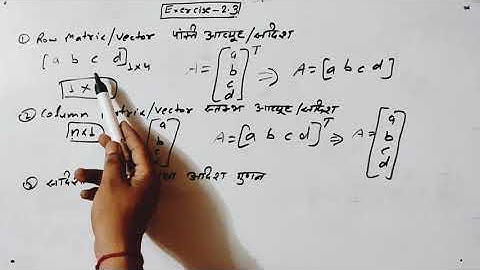 Exercise-2.3
① Row matrix/vector पंक्ति आव्यूह/सदिश
[a b c d]₁ₓ₄ A = [a b c d]ᵀ ⇒ A = [a b c d]
1 ×
② Column matrix/vector स्तम्भ आव्यूह/सदिश
n×1 [a b c A = [a b c d]ᵀ ⇒ A = [a b c d]
③ गुणन